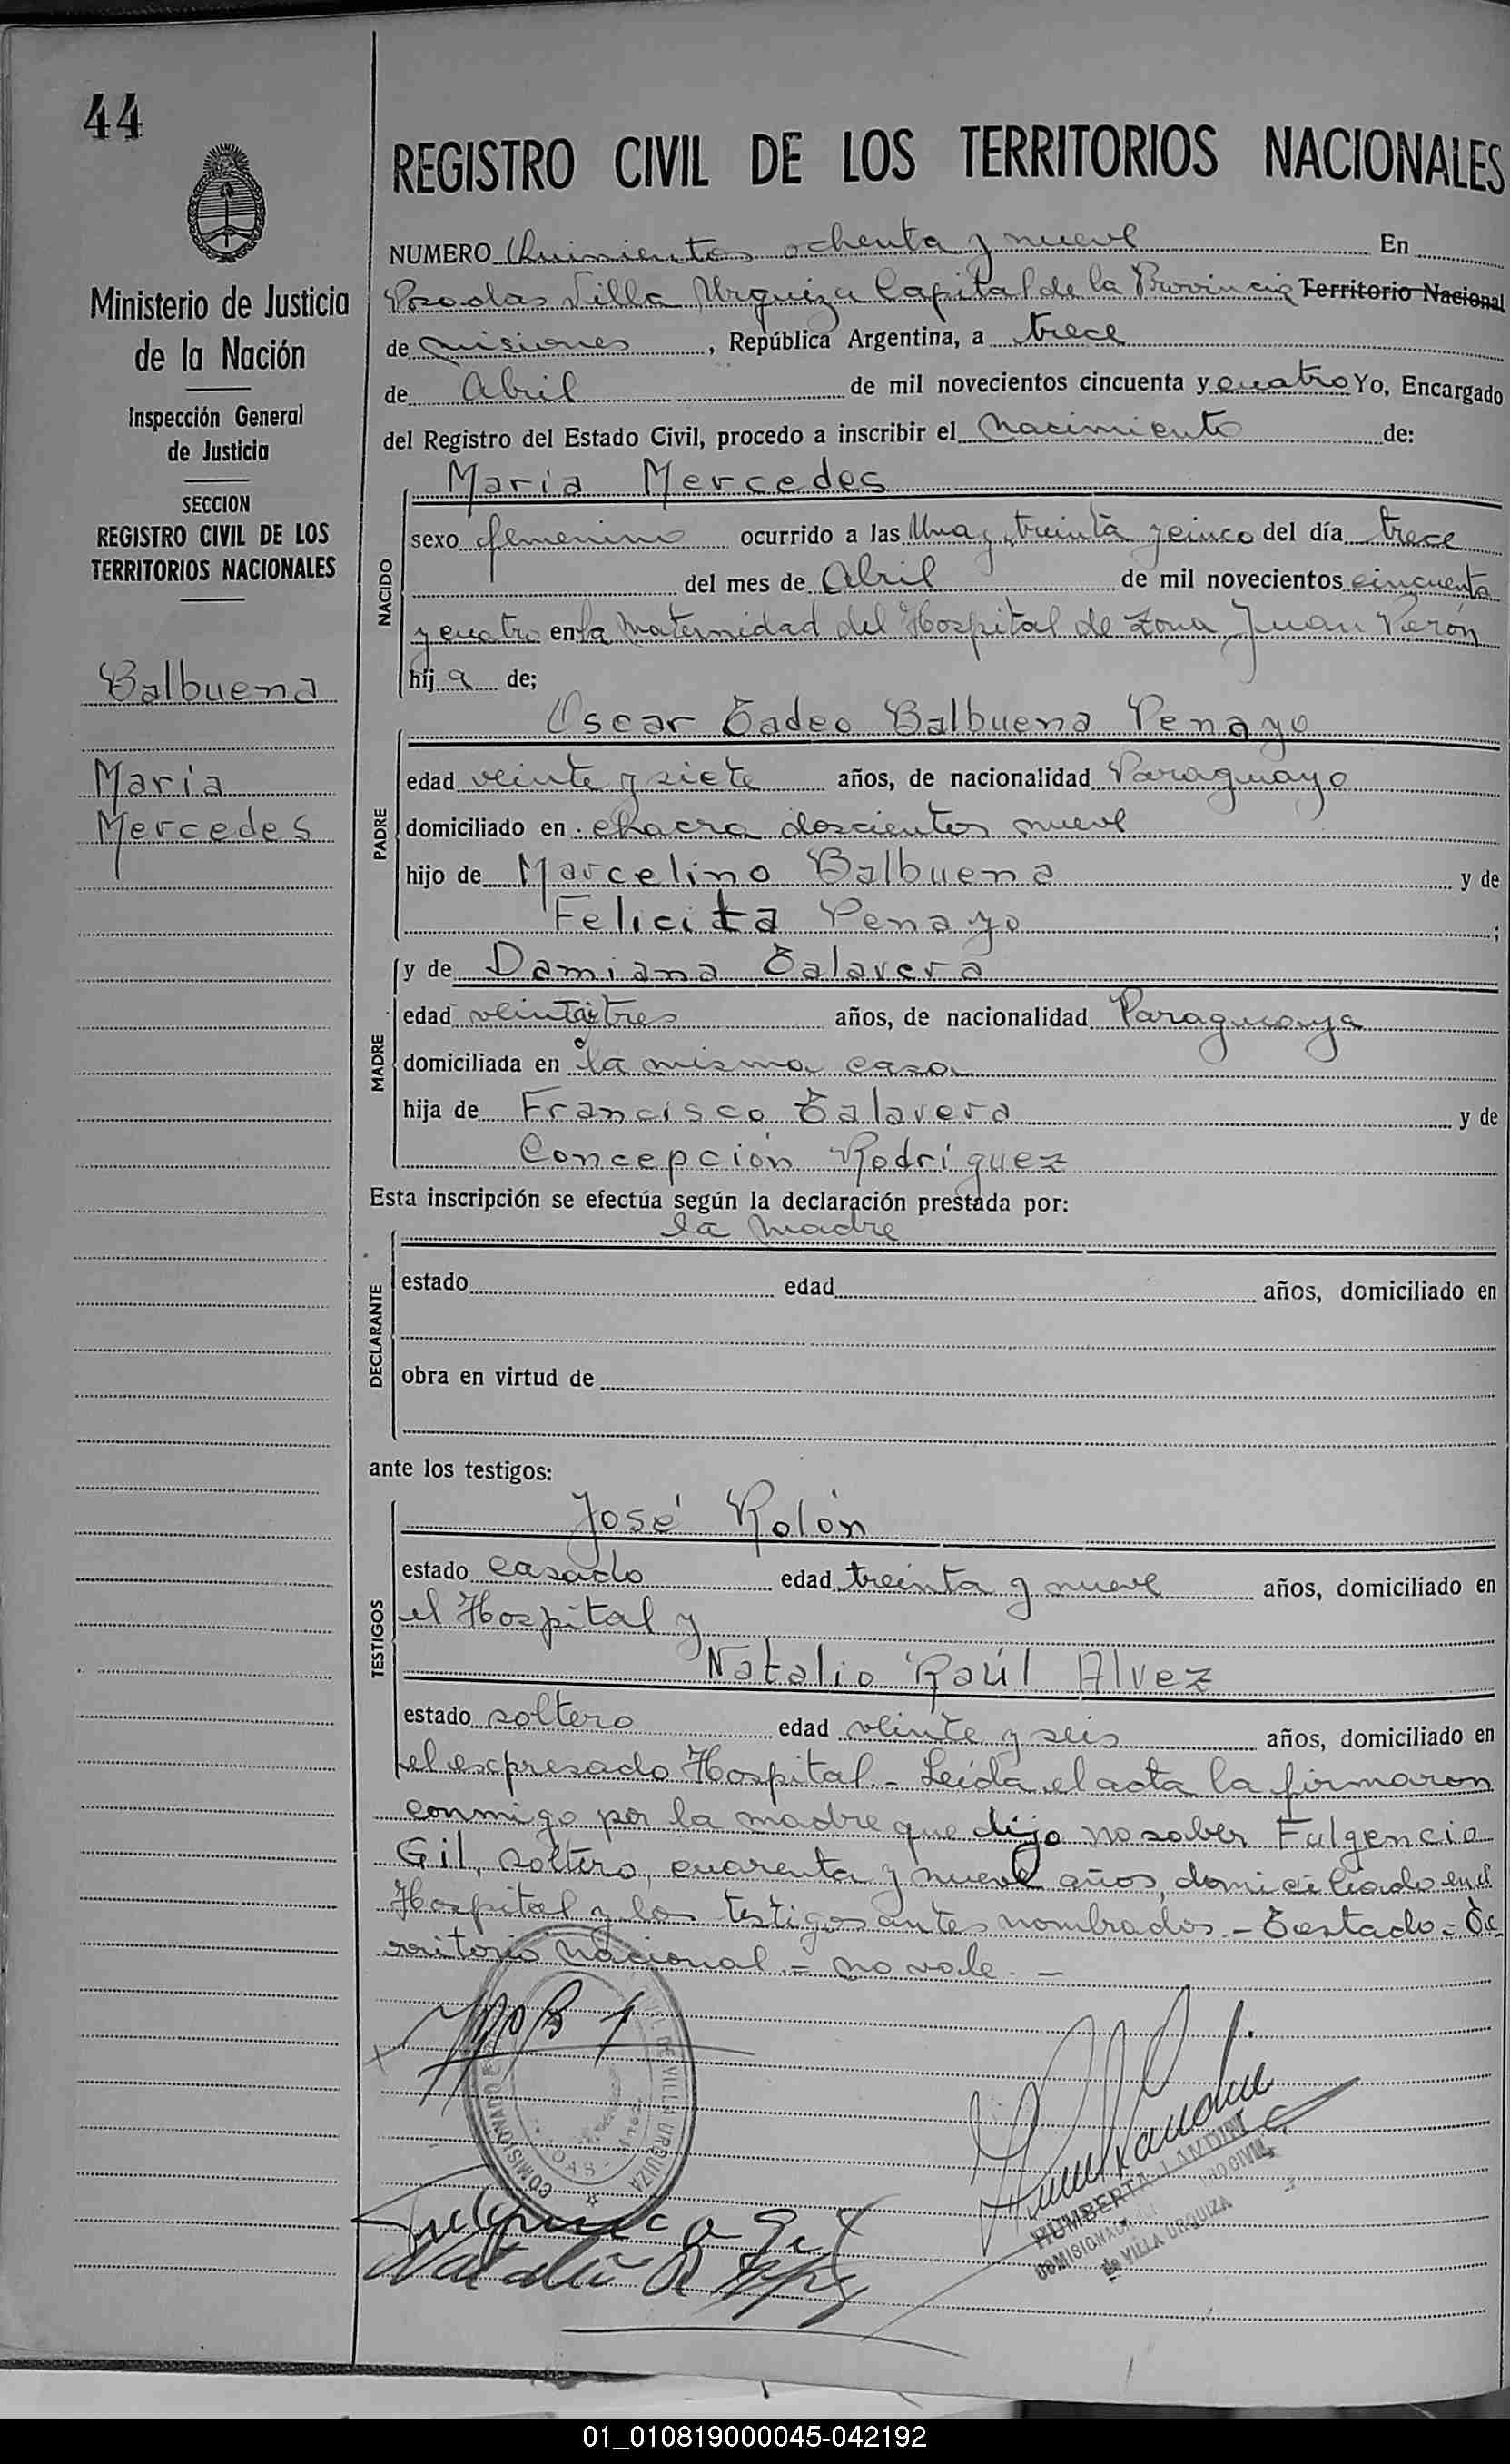 44
Ministerio de Justicia
de la Nación
Inspección General
de Justicia
SECCION
REGISTRO CIVIL DE LOS
TERRITORIOS NACIONALES
Balbuena
Maria
Mercedes
REGISTRO CIVIL DE LOS TERRITORIOS NACIONALES
NUMERO Quinientos ochenta y nueve En
Posadas Villa Urquiza Capital de la Provincia Territorio Nacional
de Misiones, República Argentina, a trece
de Abril de mil novecientos cincuenta y cuatro Yo, Encargado
del Registro del Estado Civil, procedo a inscribir el Nacimiento de:
NACIDO
Maria Mercedes
sexo femenino ocurrido a las Una y treinta y cinco del día trece
del mes de Abril de mil novecientos cincuenta
y cuatro en la Maternidad del Hospital de Zona Juan Perón
hija de;
PADRE
Oscar Tadeo Balbuena Penayo
edad veinte y siete años, de nacionalidad Paraguayo
domiciliado en chacra doscientos nueve
hijo de Marcelino Balbuena y de
Felicita Penayo;
MADRE
y de Damiana Talavera
edad veintitres años, de nacionalidad Paraguaya
domiciliada en la misma casa
hija de Francisco Talavera y de
Concepción Rodríguez
Esta inscripción se efectúa según la declaración prestada por:
DECLARANTE
la madre
estado edad años, domiciliado en
obra en virtud de
ante los testigos:
TESTIGOS
José Rolón
estado casado edad treinta y nueve años, domiciliado en
el Hospital y
Natalio Raúl Alvez
estado soltero edad veinte y seis años, domiciliado en
el expresado Hospital.- Leída el acta la firmaron
conmigo por la madre que dijo no saber Fulgencio
Gil, soltero, cuarenta y nueve años, domiciliado en el
Hospital y los testigos antes nombrados.- Testado= Te
rritorio Nacional.= no vale.-
DE VILLA URQUIZA
COMISIONADO
Fulgencio Gil
Natalio R
HUMBERTA LANDINI
COMISIONADA
de VILLA URQUIZA
01_010819000045-042192